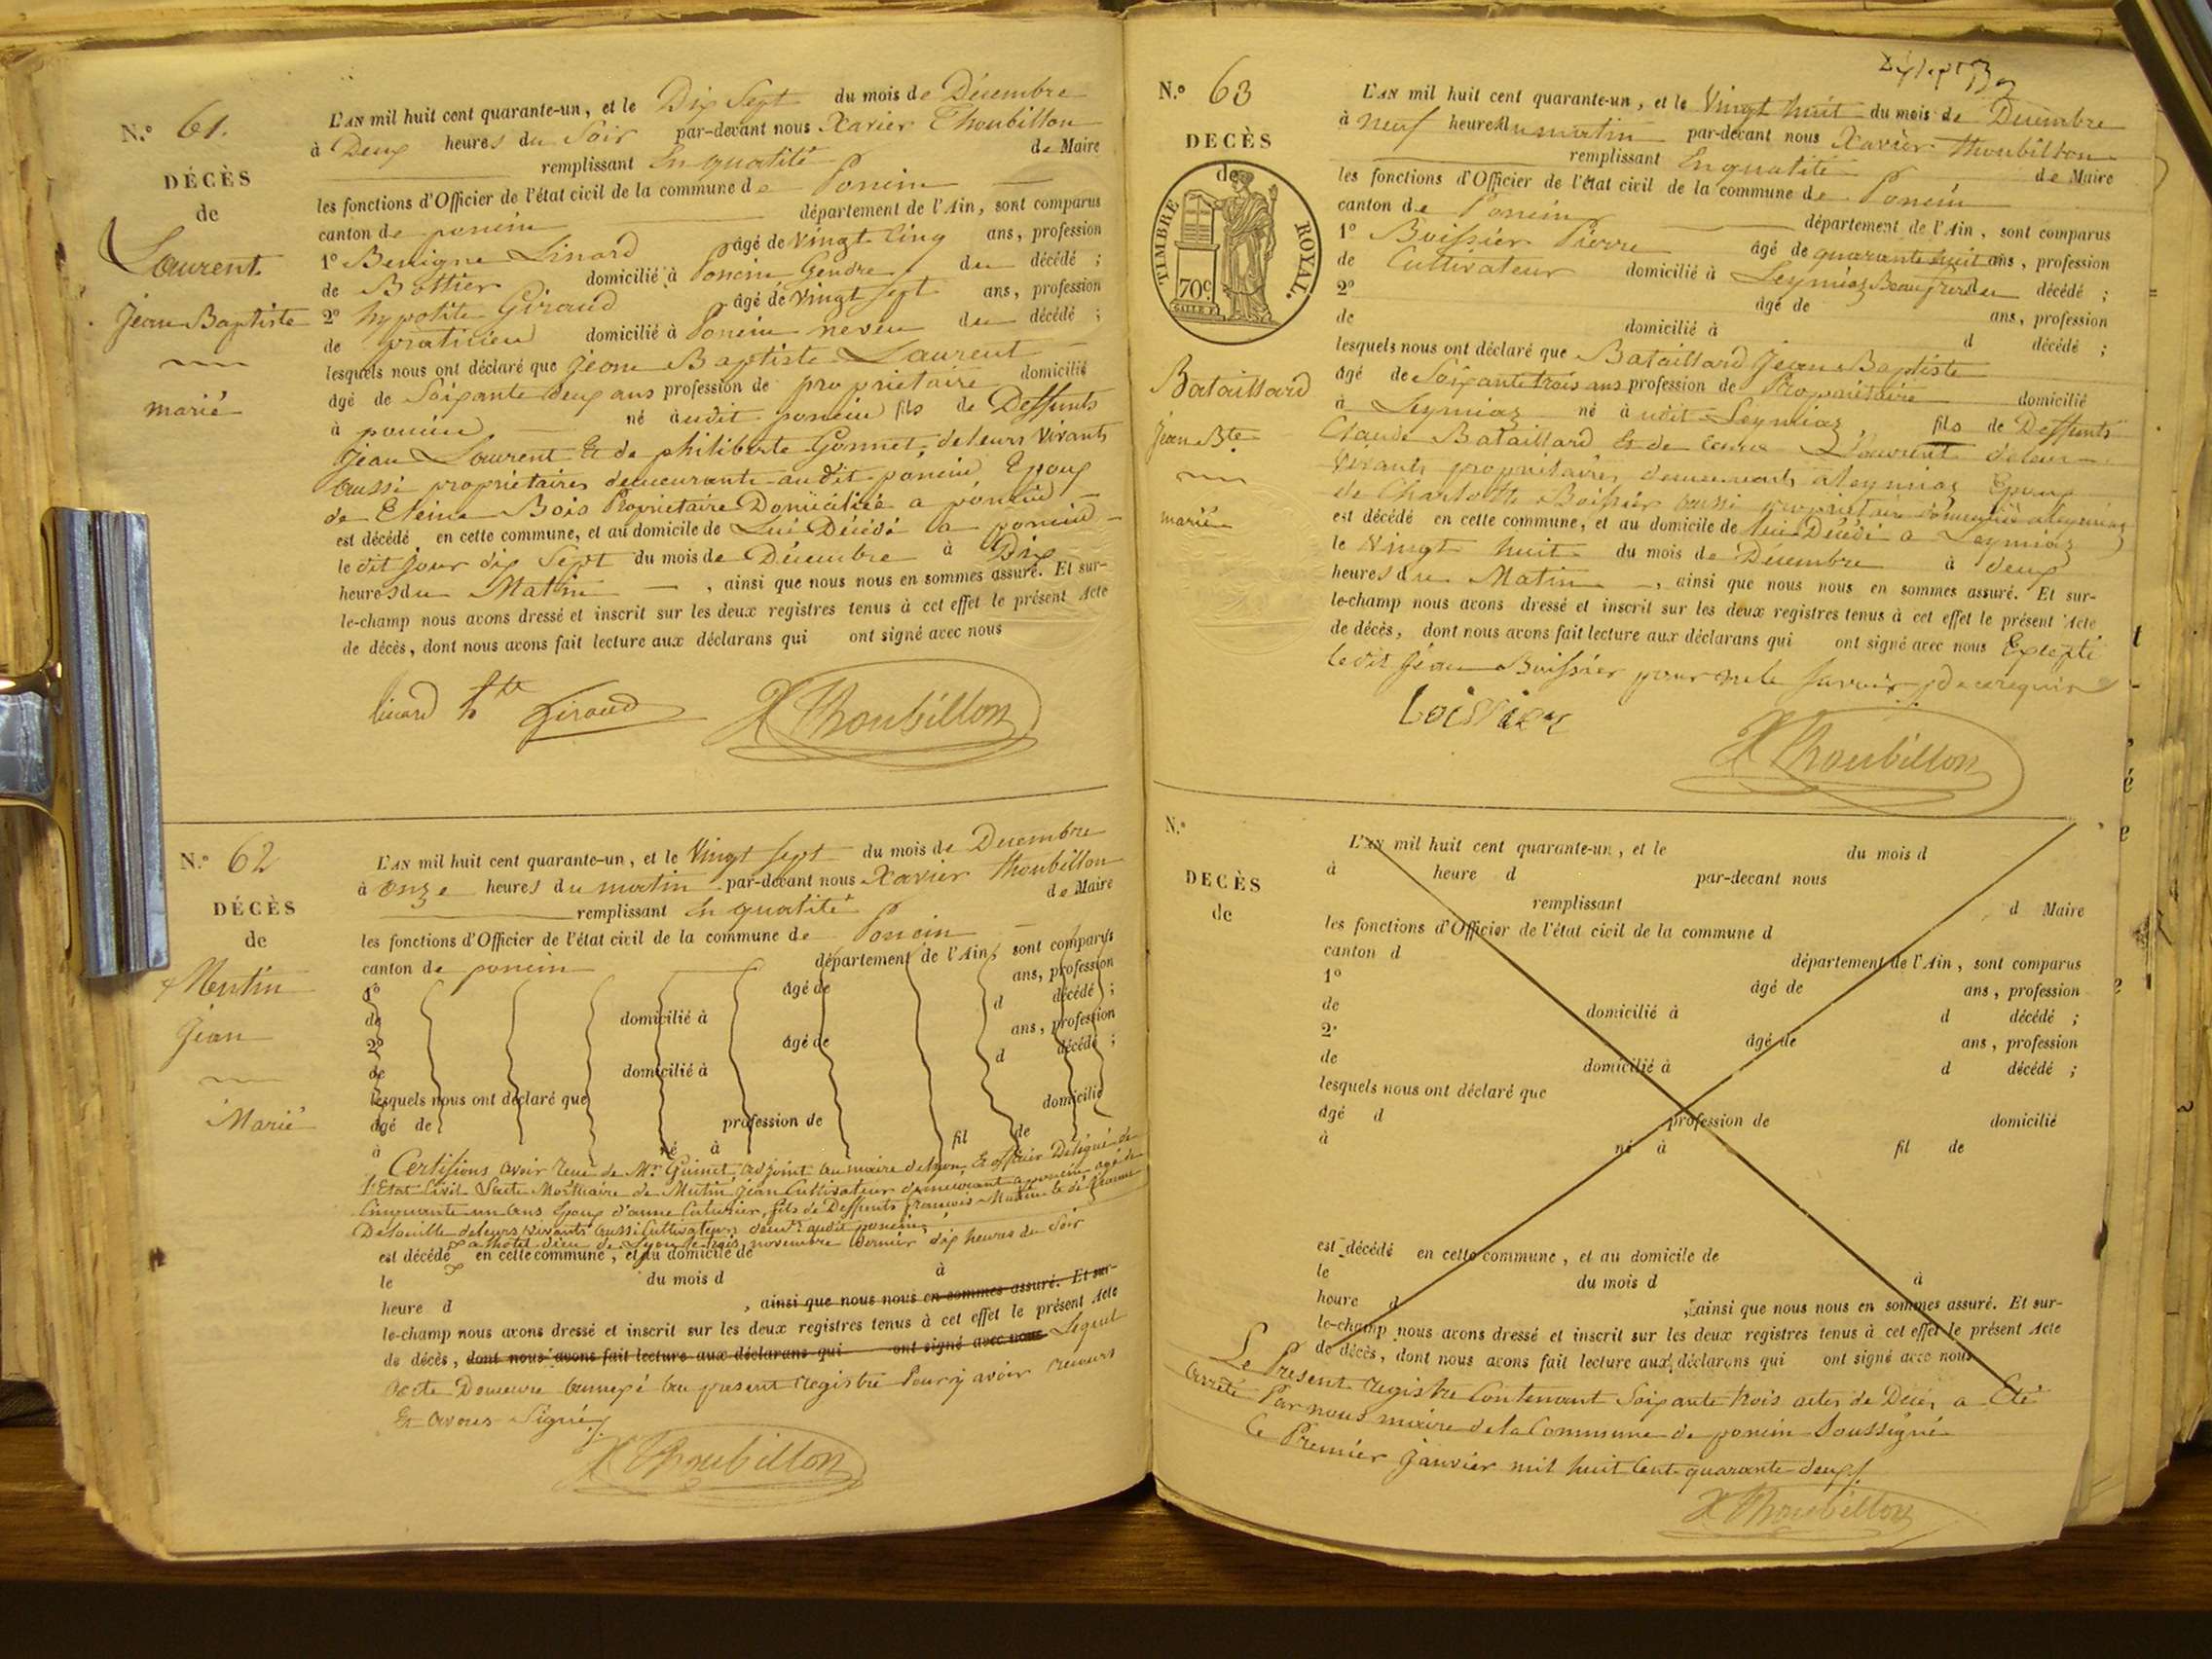 N.º 61.
DÉCÈS
de
Laurent
Jean Baptiste
marié
L'AN mil huit cent quarante-un, et le Dix Sept du mois de Décembre
à Deux heures du Soir par-devant nous Xavier Thoubillon
remplissant En qualité de Maire
les fonctions d'Officier de l'état civil de la commune de Poncin
canton de poncin département de l'Ain, sont comparus
1º Benigne Linard âgé de vingt cinq ans, profession
de Bottier domicilié à Poncin Gendre du décédé ;
2º hypolite Giraud âgé de vingt sept ans, profession
de praticien domicilié à Poncin neveu du décédé ;
lesquels nous ont déclaré que jean Baptiste Laurent
âgé de Soixante deux ans profession de propriétaire domicilié
à poncin né audit poncin fils de Deffunts
Jean Laurent Et de philiberte Gonnet, de leurs Vivants
aussi propriétaires demeurants audit poncin Epoux
de Bois Propriétaire Domiciliée a poncin
est décédé en cette commune, et au domicile de Lui Décédé a poncin
le dit jour dix Sept du mois de Décembre à Dix
heures du Matin , ainsi que nous nous en sommes assuré. Et sur-
le-champ nous avons dressé et inscrit sur les deux registres tenus à cet effet le présent Acte
de décès, dont nous avons fait lecture aux déclarans qui ont signé avec nous
linard hte Giraud X Thoubillon
N.º 62
DÉCÈS
de
Mentin
Jean
Marié
L'AN mil huit cent quarante-un, et le Vingt sept du mois de Decembre
à onze heures du matin par-devant nous Xavier thoubillon
remplissant En qualité de Maire
les fonctions d'Officier de l'état civil de la commune de Poncin
canton de poncin département de l'Ain, sont comparus
1º âgé de ans, profession
de domicilié à d décédé ;
2º âgé de ans, profession
de domicilié à d décédé ;
lesquels nous ont déclaré que
âgé de profession de domicilié
à né à fil de
Certifions avoir reçu de Mr Guinet adjoint au maire de Lyon Et officier Délégué de
l'Etat Civil l'acte Mortuaire de Mutin jean Cultivateur demeurant a poncin agé de
Cinquante un ans Epoux d'anne , fils de Deffunts françois Mutin Et de jeanne
de leurs vivants aussi Cultivateurs demts audit poncin
a l'hotel dieu de Lyon le trois novembre dernier dix heures du Soir
est décédé en cette commune, et au domicile de
le du mois d à
heure d , ainsi que nous nous en sommes assuré. Et sur-
le-champ nous avons dressé et inscrit sur les deux registres tenus à cet effet le présent Acte
de décès, dont nous avons fait lecture aux déclarans qui ont signé avec nous Lequel
acte Demeure annexé au present registre Pour y avoir recours
Et avons Signé
X Thoubillon
N.º 63
DECÈS
de
TIMBRE ROYAL.
70c
Bataillard
Jean Bte
marié
L'AN mil huit cent quarante-un, et le Vingt huit du mois de Decembre
à neuf heures du matin par-devant nous Xavier Thoubillon
remplissant En qualité de Maire
les fonctions d'Officier de l'état civil de la commune de Poncin
canton de Poncin département de l'Ain, sont comparus
1º Boissier Pierre âgé de quarante huit ans, profession
de Cultivateur domicilié à Leymiaz Beaufrere du décédé ;
2º âgé de ans, profession
de domicilié à d décédé ;
lesquels nous ont déclaré que Bataillard Jean Baptiste
âgé de Soixante trois ans profession de Propriétaire domicilié
à Leymiaz né à udit Leymiaz, fils de Deffunts
Claude Bataillard Et de Laurent de leur
vivants propriétaires demeurants a leymiaz Epoux
de Charlotte Boissier aussi propriétaire domiciliée a leymiaz
est décédé en cette commune, et au domicile de lui Décédé a Leymiaz
le Vingt huit du mois de Decembre à deux
heures du Matin , ainsi que nous nous en sommes assuré. Et sur-
le-champ nous avons dressé et inscrit sur les deux registres tenus à cet effet le présent Acte
de décès, dont nous avons fait lecture aux déclarans qui ont signé avec nous Excepté
le dit Jean Boissier pour ne le savoir de ce requis
X Thoubillon
N.º
DECÈS
de
L'AN mil huit cent quarante-un, et le du mois d
à heure d par-devant nous
remplissant d Maire
les fonctions d'Officier de l'état civil de la commune d
canton d département de l'Ain, sont comparus
1º âgé de ans, profession
de domicilié à d décédé ;
2º âgé de ans, profession
de domicilié à d décédé ;
lesquels nous ont déclaré que
âgé d profession de domicilié
à né à fil de
est décédé en cette commune, et au domicile de
le du mois d à
heure d , ainsi que nous nous en sommes assuré. Et sur-
le-champ nous avons dressé et inscrit sur les deux registres tenus à cet effet le présent Acte
de décès, dont nous avons fait lecture aux déclarans qui ont signé avec nous
Le Present registre Contenant Soixante trois actes de Décès a Eté
arrêté Par nous maire de la Commune de poncin Soussigné
Ce Premier janvier mil huit Cent quarante deux.
X Thoubillon